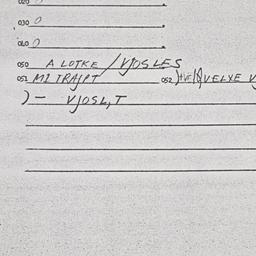 020
030 0
040 0
050 A LOTKE / VJOSLES
051 MI TRAJPT 052 )+VE/QVELVE V
) - VJOSL,T